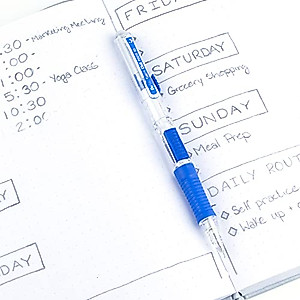 :30 - Marketing Meeting
1:00 -
5:30 - Yoga Class
10:30
2:00
DAY
FRIDAY
SATURDAY
Grocery Shopping
SUNDAY
Meal Prep
DAILY ROUT
Self practice
Wake up +